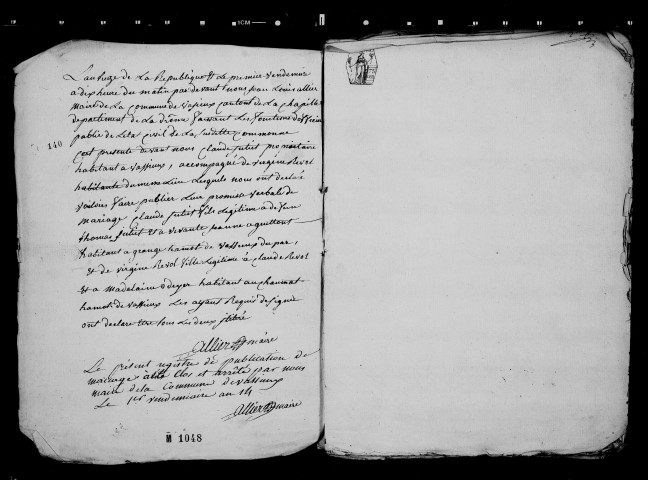 Lan treze de La Republique et Le premier vendemiere
a dix heure du matin par devant nous jean Louis allier
maire de La Commune de vassieux canton de La chapelle
departement de La drome faisant Les fonctions
public de Letat civil de La Commune
est presente devant nous claude juliet proprietaire
140
habitant a vassieux, accompagné de virginie Revol
habitante du meme Lieu Lesquels nous ont declaré
vouloir faire publier Leur promesse verbale de
mariage claude juliet fils Legitime a defeu
thomas juliet et a vivante jeanne
habitant a grange hamot de vassieux du par,
et de virginie Revol fille Legitime à claude Revol
et a Madelaine habitant au
hamot de vassieux Les ayant Requis de signer
ont declare être tous Les deux jlitré
allier maire
Le présent registre de publication de
mariage clos et arrêté par nous
maire de la Commune de vassieux
Le 1er vendemiaire an 14
allier maire
M 1048
1CM